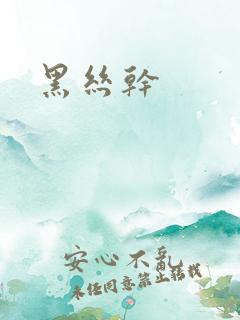 黑絲幹
安心不亂
未经同意禁止转载